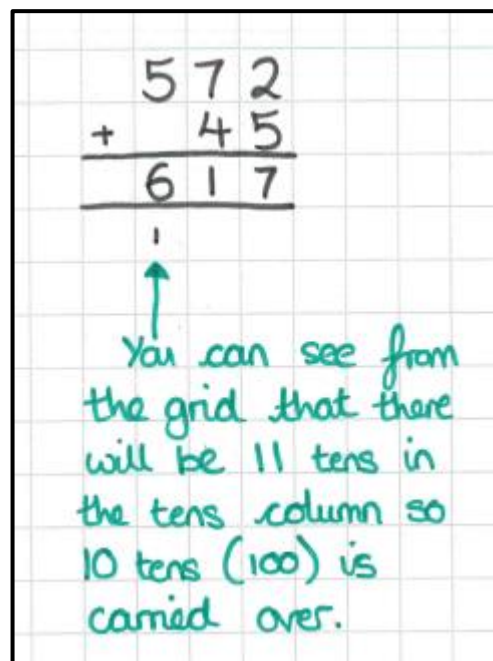 572
+ 45
617
1
You can see from
the grid that there
will be 11 tens in
the tens column so
10 tens (100) is
carried over.